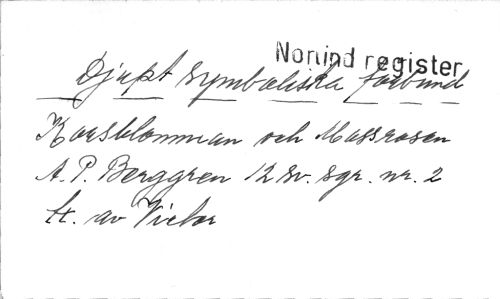 Norlind register
Djupt symboliska förbund
Korsblomman och Mossrosen
A. P. Berggren 12 sv. sgr. nr. 2
tr. av Victor